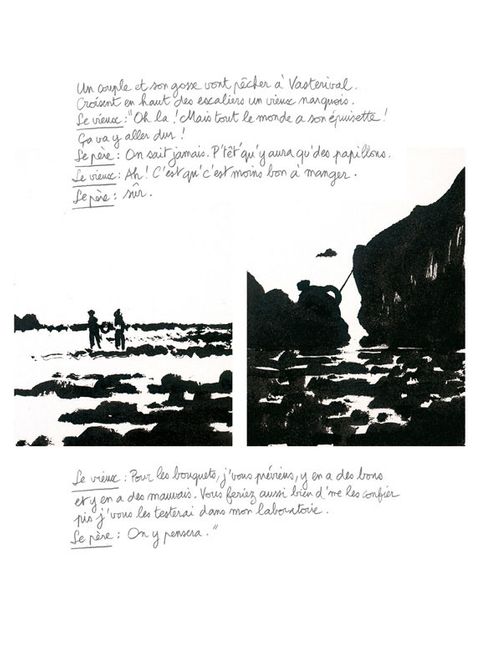 Un couple et son gosse vont pêcher à Vasterival.
Croisent en haut des escaliers un vieux narquois.
Le vieux : "Oh la ! Mais tout le monde a son épuisette !
Ça va y aller dur !
Le père : On sait jamais. P'têt' qu'y aura qu'des papillons.
Le vieux : Ah ! C'est qu'c'est moins bon à manger.
Le père : sûr.
Le vieux : Pour les bouquets, j'vous préviens, y en a des bons
et y en a des mauvais. Vous feriez aussi bien d'me les confier
pis j'vous les testerai dans mon laboratoire.
Le père : On y pensera."